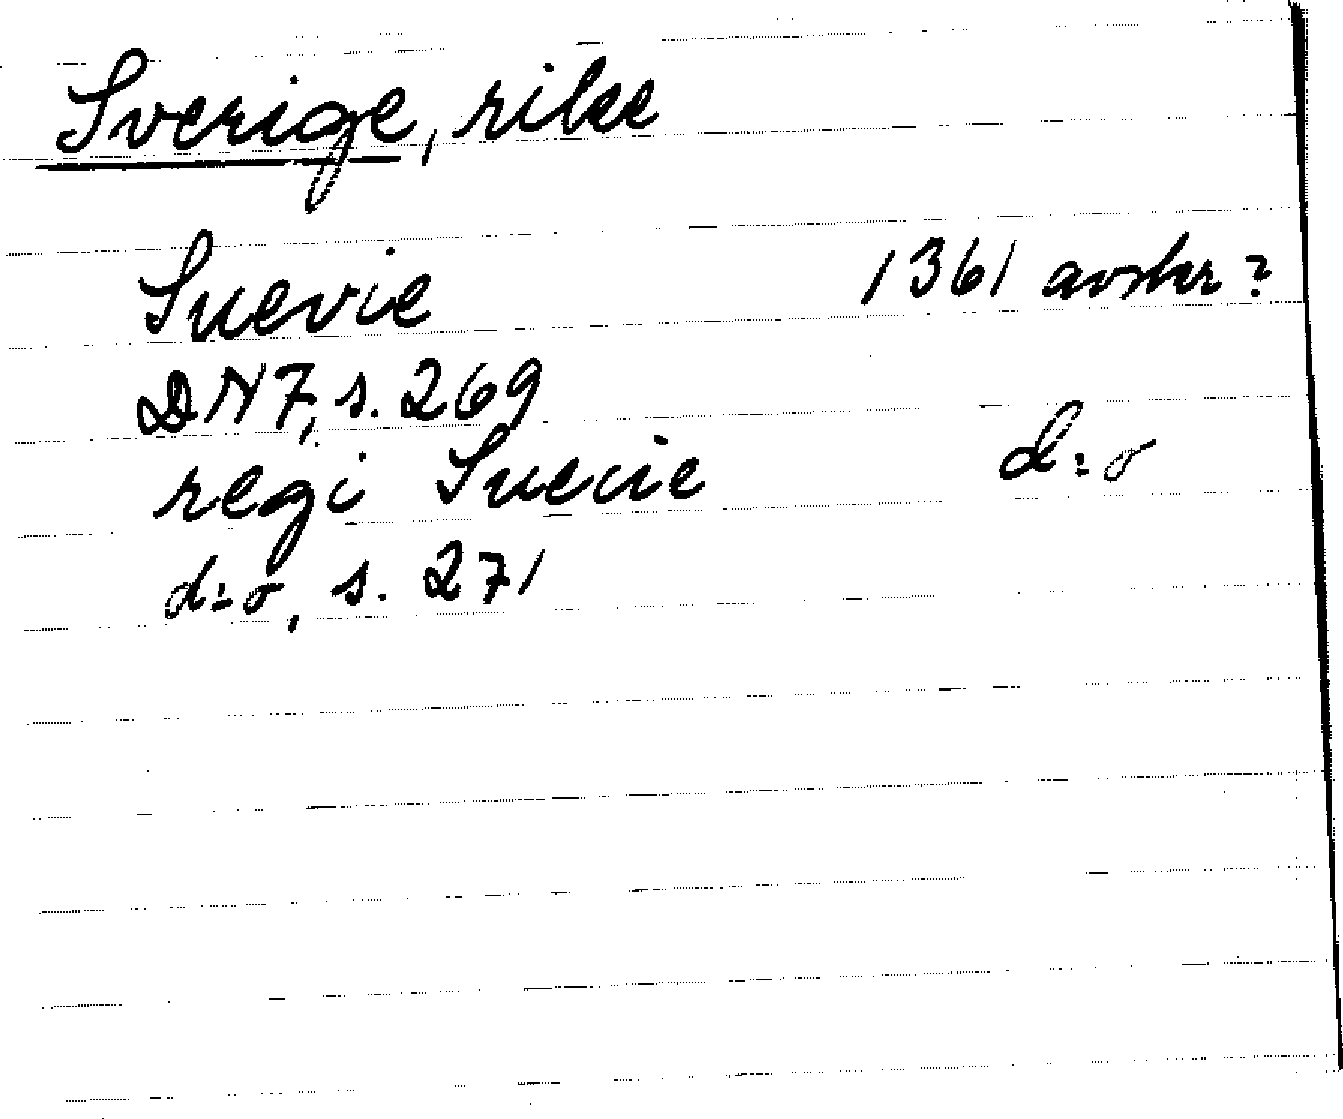 Sverige, rike
Suevie 1361 avskr?
DN 7, s. 269
regi Suecie d:o
d:o, s. 271